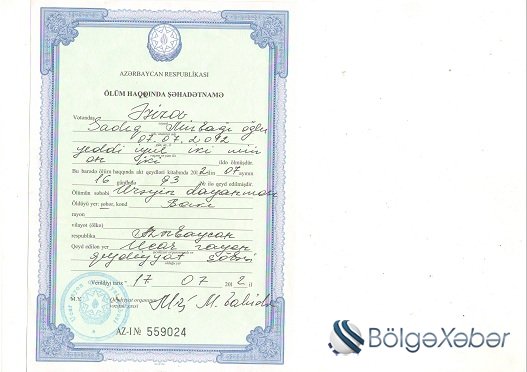 AZƏRBAYCAN RESPUBLİKASI
ÖLÜM HAQQINDA ŞƏHADƏTNAMƏ
Vətəndaş
Sadıq Mirbağı oğlu
07.07.2012
yeddi iyul iki min
on iki ildə ölmüşdür.
Bu barədə ölüm haqqında akt qeydləri kitabında 2012 ilin 07 ayının
16 93 № ilə qeyd edilmişdir.
Ölümün səbəbi Ürəyin dayanması
Öldüyü yer: şəhər, kənd Bakı
rayon
vilayət (ölkə)
respublika Azərbaycan
Qeyd edilən yer Ucar rayon
qeydiyyat şöbəsi
Verildiyi tarix 17 07 2012 il
M.Y.
AZ-I № 559024
BölgəXəbər